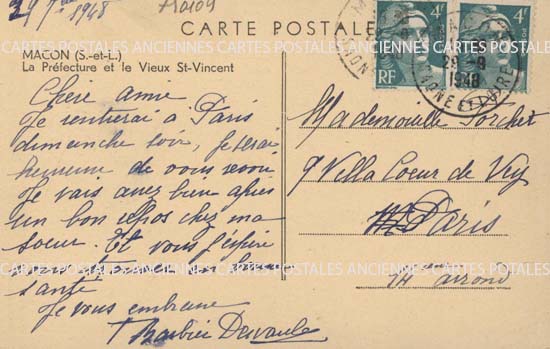 1948
A10109
CARTE POSTALE
MACON (S.-et-L.)
La Préfecture et le Vieux St-Vincent
4F
4F
RF
29-9
1948
SAONE ET LOIRE
CARTES POSTALES ANCIENNES CARTES POSTALES ANCIENNES
Chère amie
Je rentrerai à Paris
dimanche soir, je serai
heureuse de vous revoir
Je vais assez bien après
un bon repos chez ma
soeur. Et vous j'espère
santé
Je vous embrasse
Mademoiselle Porcher
9 Villa Coeur de Vey
Paris
14 arrond
CARTES POSTALES ANCIENNES CARTES POSTALES ANCIENNES